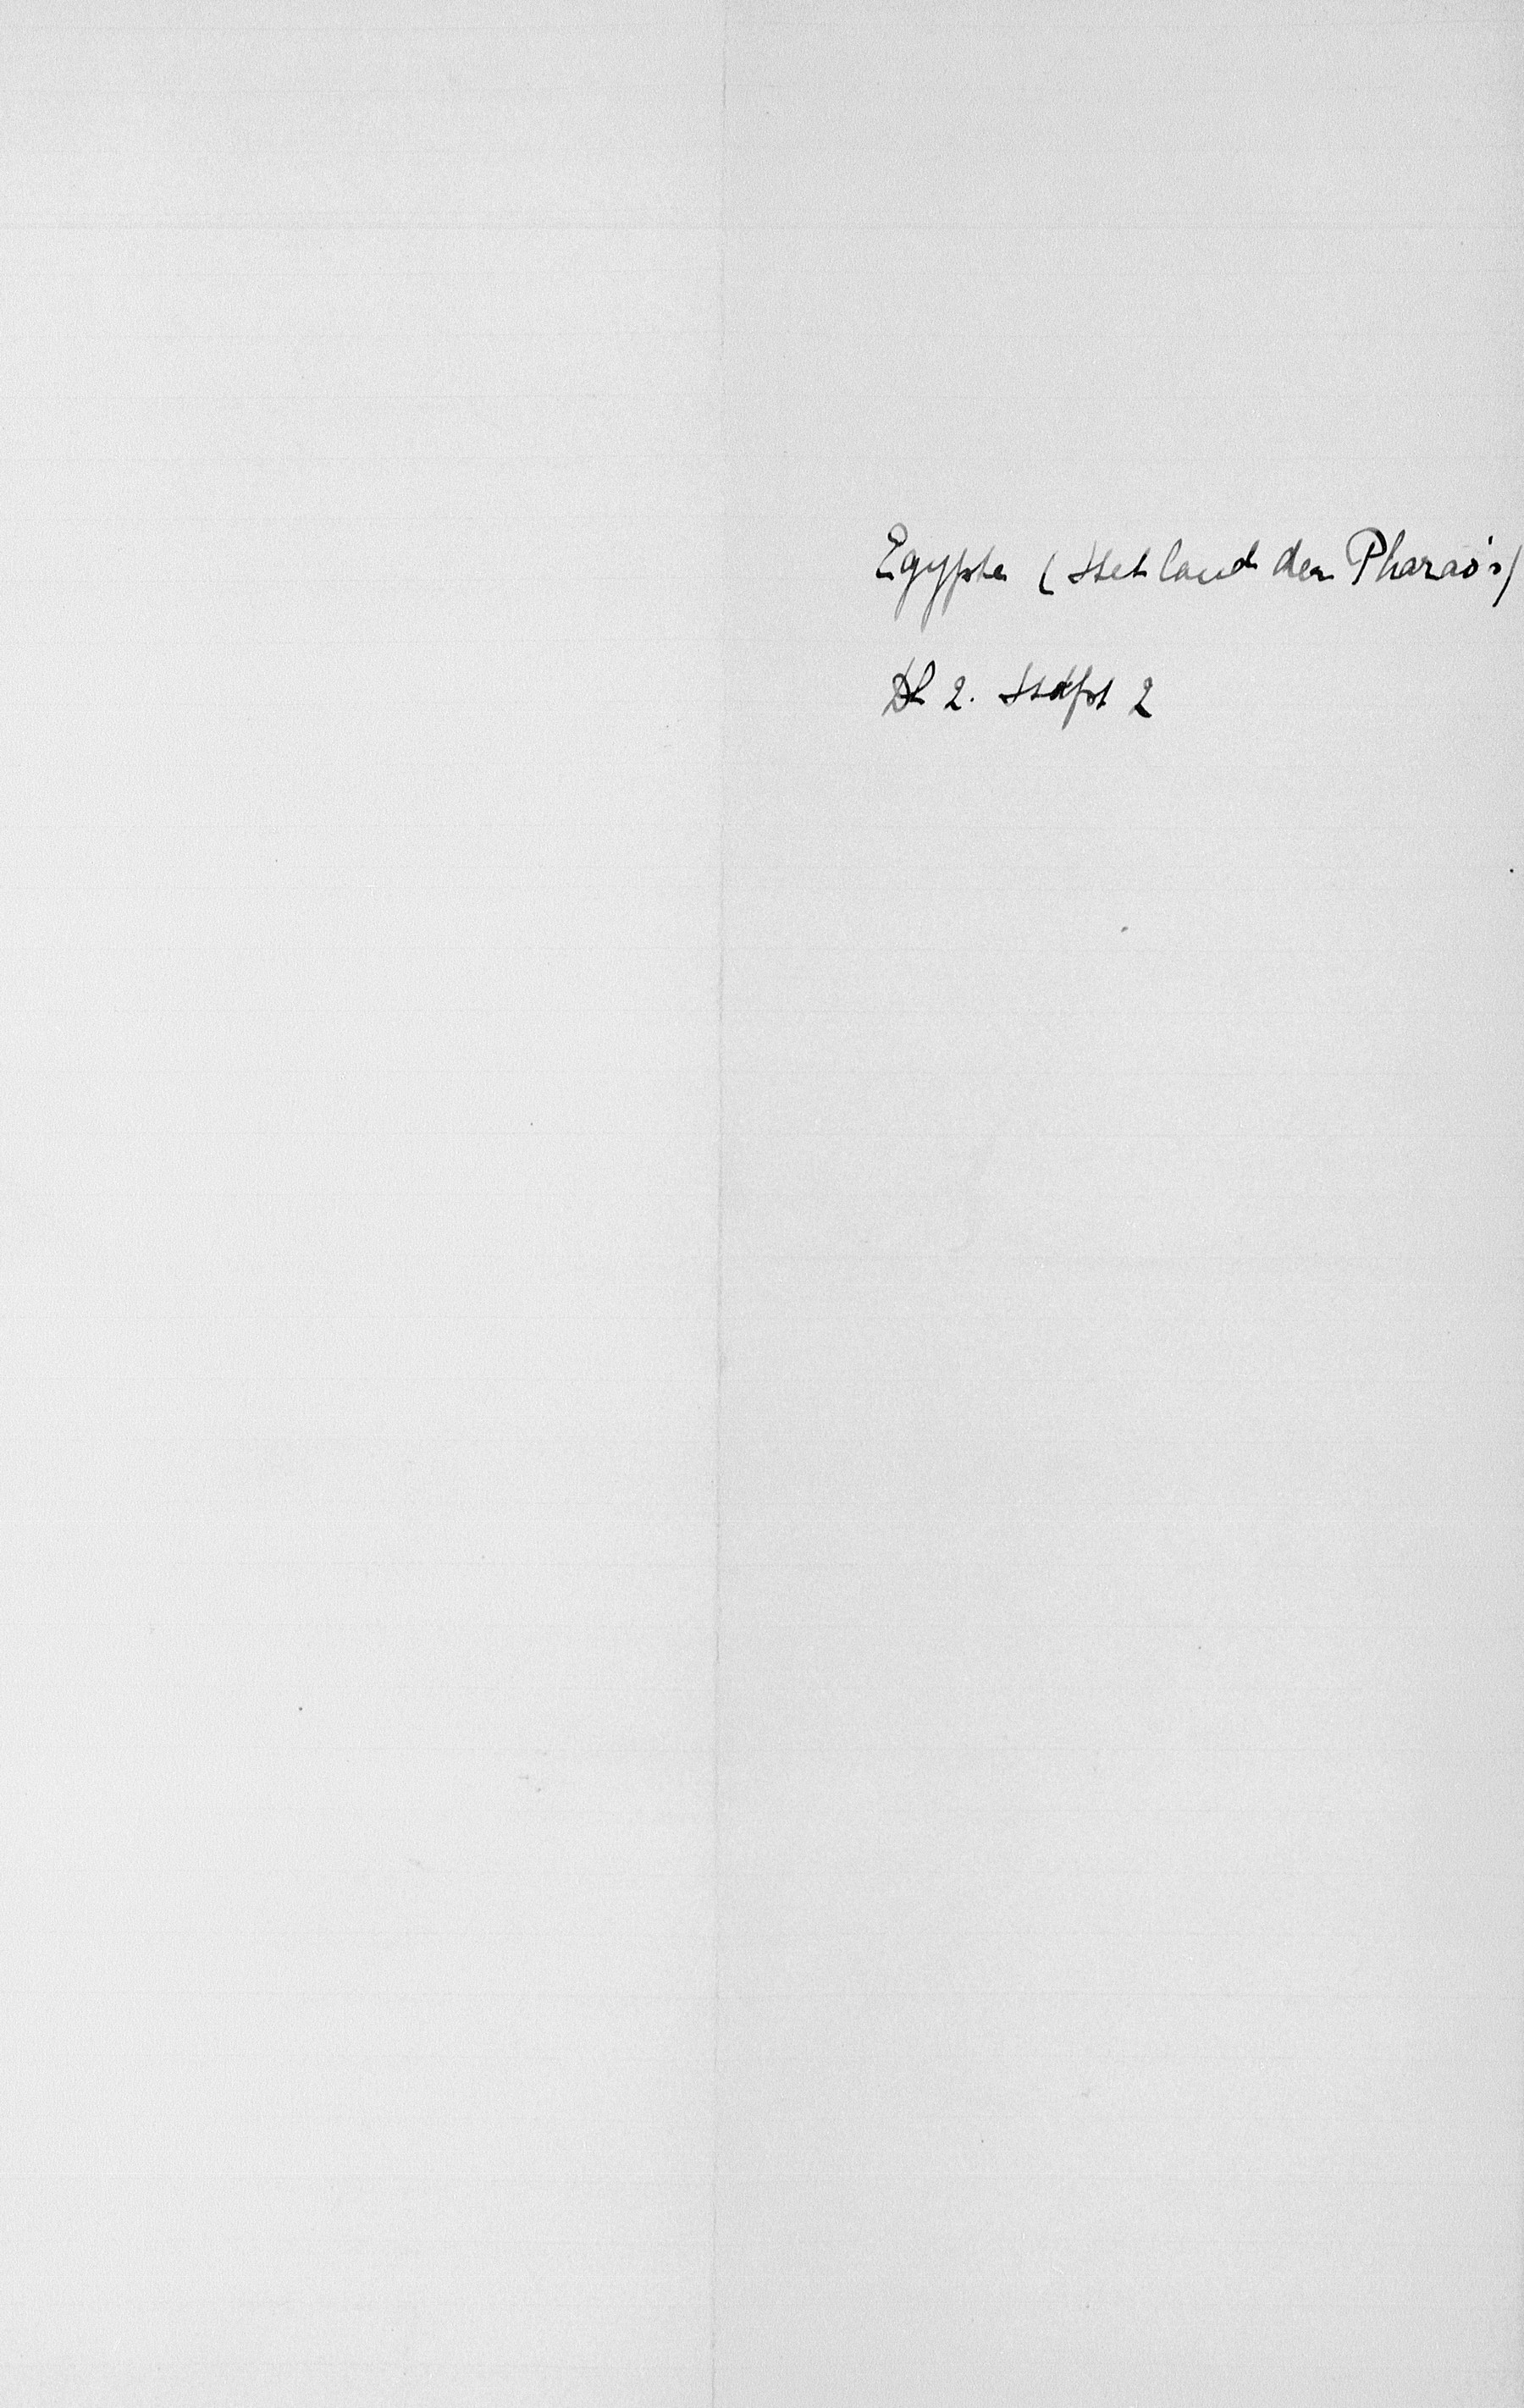 Egypte (Het land der Pharao's)
Dl 2. Hdfst 2